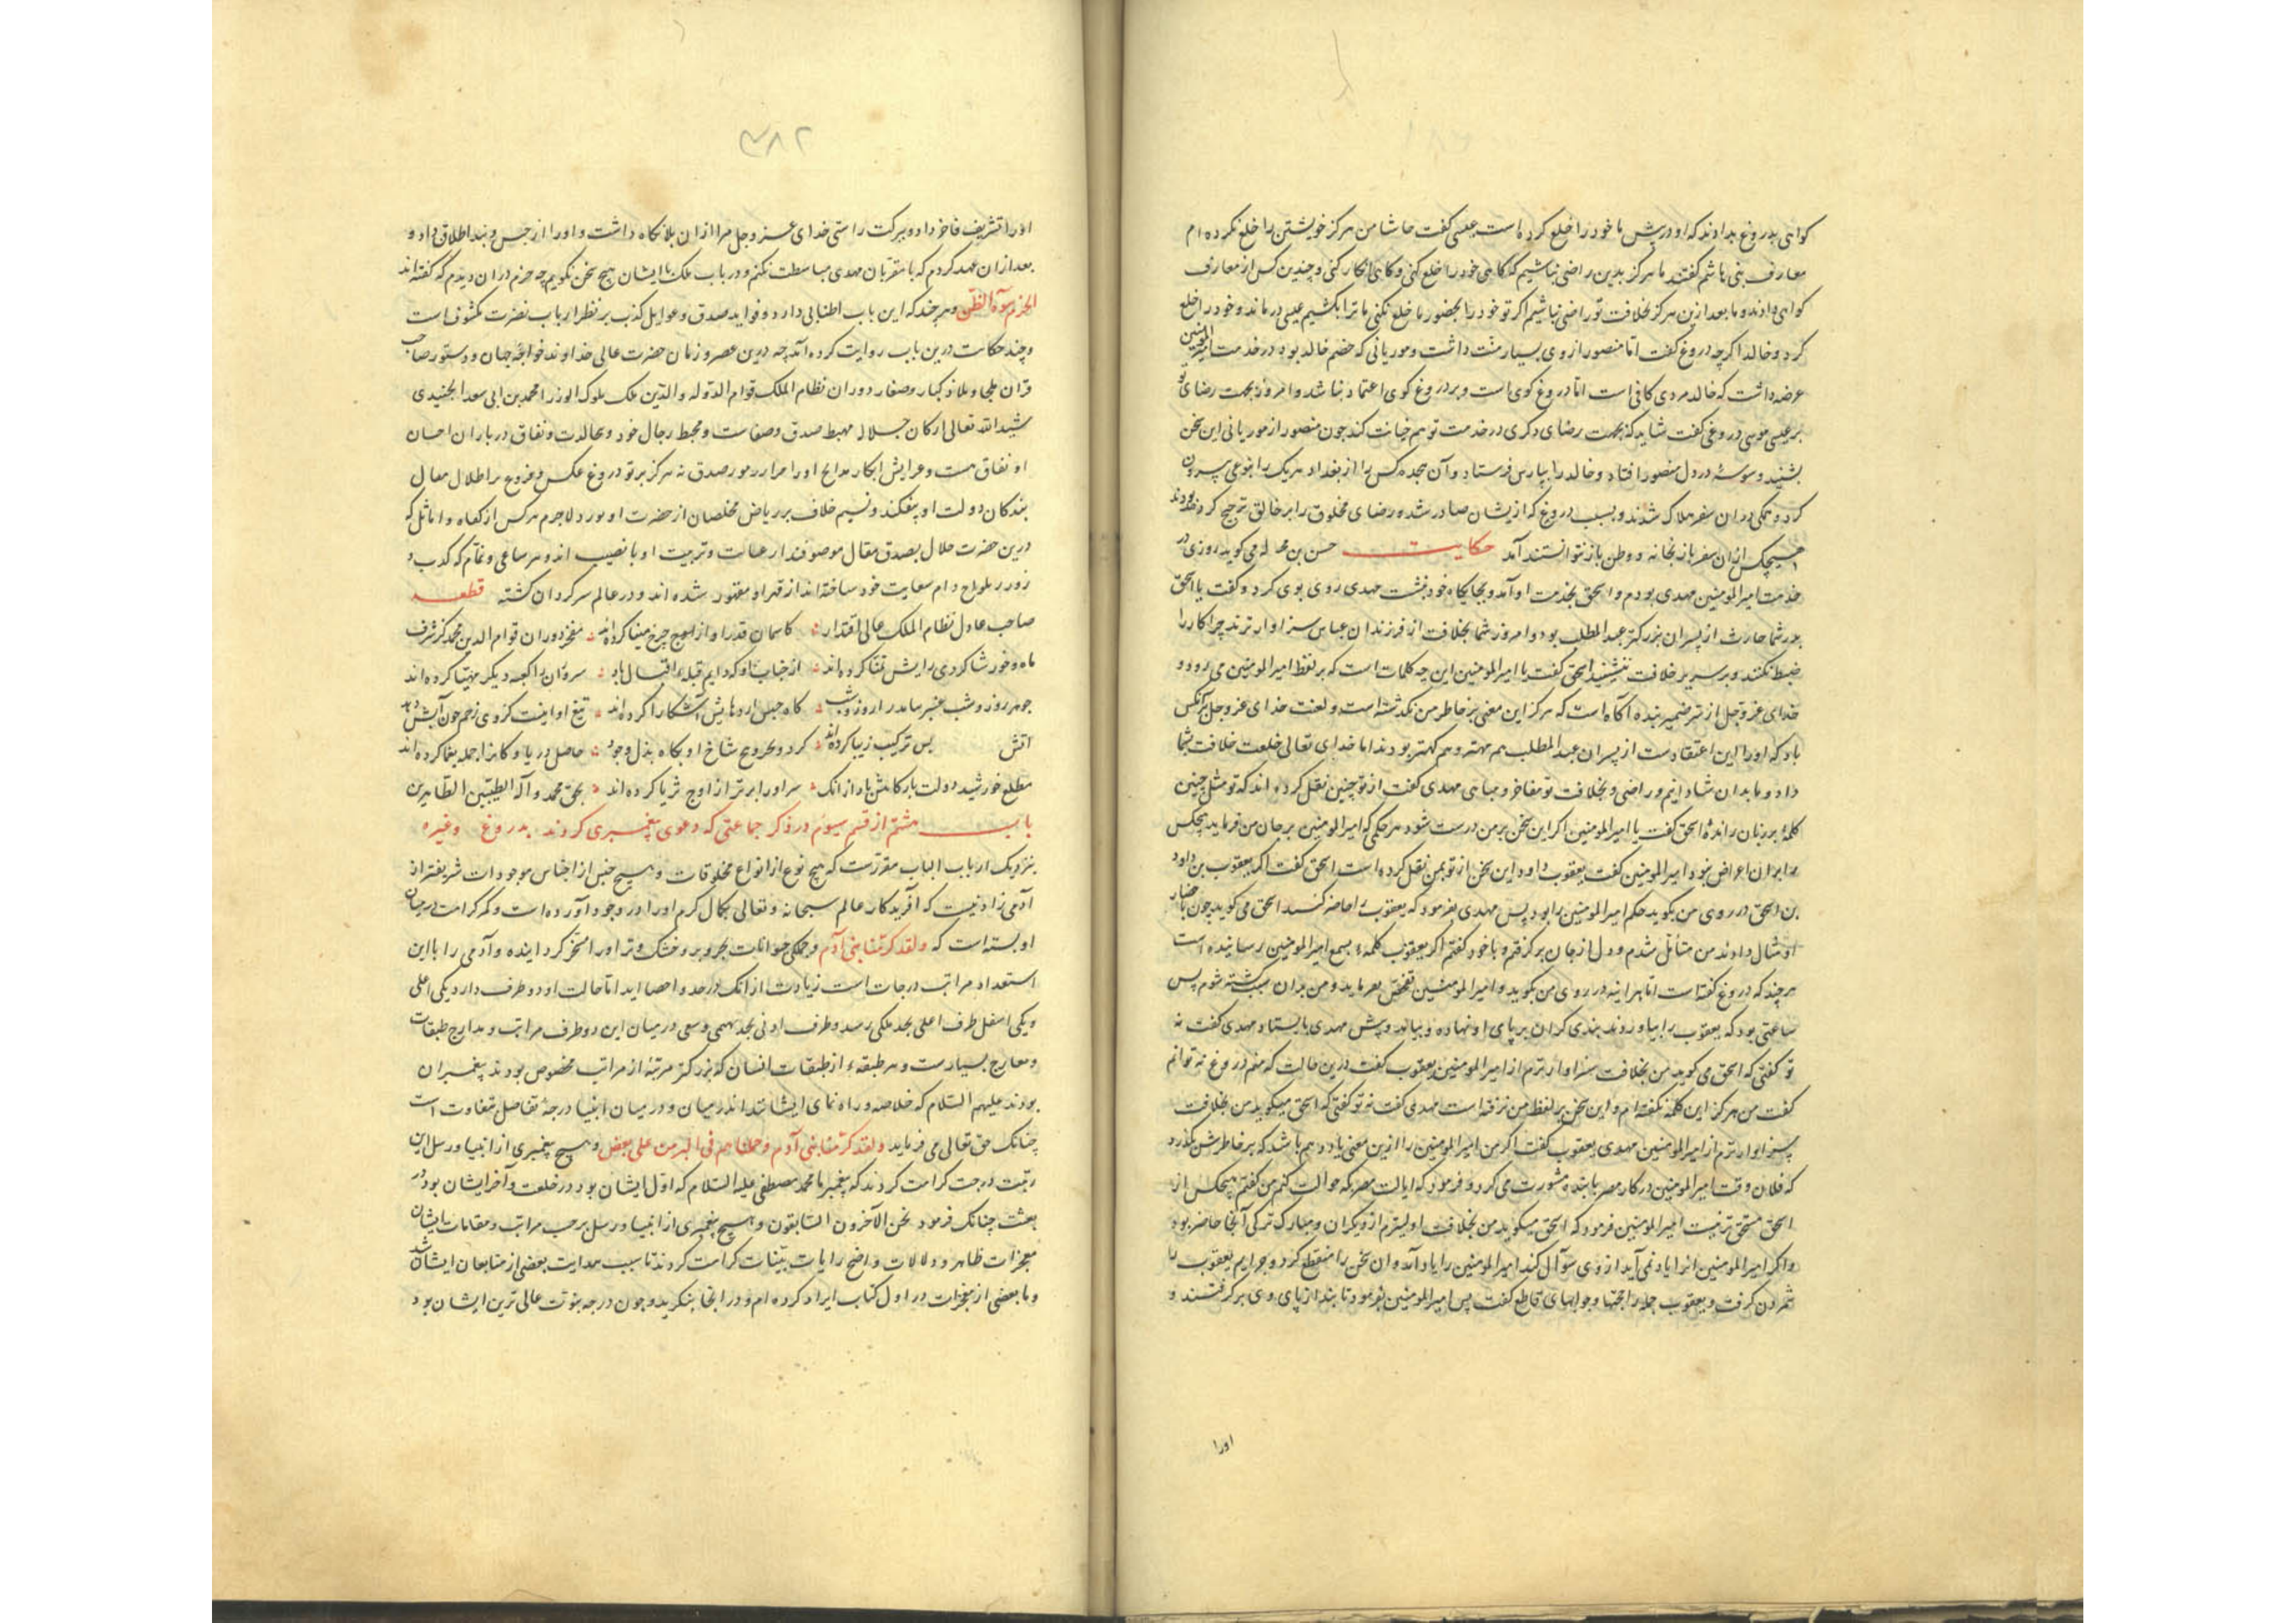 کواهی بدروغ بدادند که او در پیش ما خود را خلع کرده است عیسی کفت حاشا من هرکز خویشتن را خلع نکرده ام
معارف بنی هاشم کفتند ما هرکز بدین راضی نباشیم که کاهی خود را خلع کنی و کاهی انکار کنی و چندین کس از معارف
کواهی دادند و ما بعد ازین هرکز بخلافت تو راضی نباشیم اکر تو خود را بحضور ما خلع نکنی ما ترا بکشیم عیسی در ماند و خود را خلع
کرد و خالد اکرچه دروغ کفت اما منصور از وی بسیار منت داشت و موریانی که خصم خالد بود در خدمت امیر المؤمنین
عرضه داشت که خالد مردی کافی است اما دروغ کوی است و بر دروغ کوی اعتماد نباشد و امروز بجهت رضای تو
بر عیسی موسی دروغی کفت شاید که بجهت رضای دکری در خدمت تو هم خیانت کند چون منصور از موریانی این سخن
بشنید وسوسهٔ در دل منصور افتاد و خالد را بپارس فرستاد و آن هجده کس را از بغداد هریک را بنوعی بیرون
کرد و همکی در ان سفر هلاک شدند و بسبب دروغ که ازیشان صادر شد و رضای مخلوق را بر خالق ترجیح کرده بودند
هیچکس ازان سفر باز بخانه و وطن باز نتوانستند آمد حکایت حسن بن له می کوید روزی در
خدمت امیر المومنین مهدی بودم و اسحق بخدمت او آمد و بجایکاه خود بنشست مهدی روی بوی کرد و کفت یا اسحق
پدر شما حارث از پسران بزرکتر عبد المطلب بود و امروز شما بخلافت از فرزندان عباس سزاوارترند چرا کار را
ضبط نکنند و بر سریر خلافت ننشینند اسحق کفت یا امیر المومنین این چه کلمات است که بر لفظ امیر المومنین می رود و
خدای عزوجل از سر ضمیر بنده آکاه است که هرکز این معنی بر خاطر من نکذشته است و لعنت خدای عز و جل برآنکس
باد که او را این اعتقادست از پسران عبد المطلب هم مهتر و هم کهتر بودند اما خدای تعالی خلعت خلافت بشما
داد و ما بدان شادانیم و راضی و بخلافت تو مفاخر و مباهی مهدی کفت از تو چنین نقل کرده اند که تو مثل چنین
کلمهٔ بر زبان راندهٔ اسحق کفت یا امیر المومنین اکر این سخن بر من درست شود هر حکمی که امیر المومنین بر جان من فرماید هیچکس
را بران اعراض نبود امیر المومنین کفت یعقوب داود این سخن از تو بمن نقل کرده است اسحق کفت اکر یعقوب بن داود
بن اسحق در روی من بکوید حکم امیر المومنین را بود پس مهدی بفرمود که یعقوب را حاضر کنند اسحق می کوید چون باحضار
او مثال دادند من متأمل شدم و دل از جان برکرفتم و با خود کفتم اکر یعقوب کلمهٔ بسمع امیر المومنین رسانیده است
هرچند که دروغ کفته است اما هر اینه در روی من بکوید و امیر المومنین تفحص نفرماید و من بدان سبب کشته شوم پس
ساعتی بود که یعقوب را بیاوردند بندی کران بر پای او نهاده و بیامد و پیش مهدی بایستاد مهدی کفت نه
تو کفتی که اسحق می کوید من بخلافت سزاوارترم از امیر المومنین یعقوب کفت درین حالت که منم دروغ نه توانم
کفت من هرکز این کلمه نکفته ام و این سخن بر لفظ من نرفته است مهدی کفت نه تو کفتی که اسحق میکوید من بخلافت
سزاوارترم از امیر المومنین مهدی یعقوب کفت اکر من امیر المومنین را ازین معنی یاد دهم باشد که بر خاطرش بکذرد
که فلان وقت امیر المومنین در کار مصر با بنده مشورت می کرد و فرمود که ایالت مصر بکه حوالت کنم من کفتم هیچکس از
اسحق مستحق تر نیست امیر المومنین فرمود که اسحق میکوید من بخلافت اولیترم از دیکران و مبارک ترکی آنجا حاضر بود
و اکر امیر المومنین انرا یاد نمی آید از وی سؤال کند امیر المومنین را یاد آمد و ان سخن را منقطع کرد و جرایم یعقوب را
شمردن کرفت و یعقوب جمله را حجتها و جوابهای قاطع کفت پس امیر المومنین بفرمود تا بند از پای وی برکرفتند و
اورا
۳۸۲
اورا تشریف فاخر داد و ببرکت راستی خدای عز و جل مرا ازان بلا نکاه داشت و اورا از حبس و بند اطلاق داد و
بعد ازان عهد کردم که با مقربان مهدی مباسطت نکنم و در باب ملک با ایشان هیچ سخن نکویم چه حزم دران دیدم که کفته اند
الحزم سوء الظن و هرچند که این باب اطنابی دارد و فواید صدق و غوایل کذب بر نظر ارباب بصیرت مکشوف است
و چند حکایت درین باب روایت کرده آمد چه درین عصر و زمان حضرت عالی خداوند خواجه جهان و دستور صاحب
قران ملجا و ملاذ کبار و صغار دوران نظام الملک قوام الدوله والدین ملک ملوک الوزرا محمد بن ابی سعد الجنیدی
شید الله تعالی ارکان جلاله مهبط صدق و صفاست و محط رجال خود و نفاق در باران احسان
او نفاق هست و عرایش ابکار مدایح اورا صدق نه هرکز برتو دروغ عکس و فروغ بر اطلال معالی
بندکان دولت او بیفکند و نسیم خلاف بر ریاض مخلصان از حضرت او لاجرم هرکس از کفاه و اماثل که
درین حضرت جلال بصدق مقال موصوفند از عنایت و تربیت او با نصیب اند و هر ساعی و نمام که کذب و
زور را دام سعایت خود ساخته اند از قهر او مقهور شده اند و در عالم سرکردان کشته قطعه
صاحب عادل نظام الملک عالی اقتدار کاسمان قدر او از اوج چرخ مینا کرده اند مفخر دوران قوام الدین محمد کز شرف
ماه و خور شاکردی رایش تمنا کرده اند از جناب او که دایم قبله اقبال باد سروران را کعبه دیکر مهیا کرده اند
جوهر روز و شب عنبر اروز و شب کاه آشکارا کرده اند تیغ او اینست کز وی زخم چون آبش دهد
آتش بس ترکیب زیبا کرده اند کرد و شاخ او بکاه بذل وجود حاصل دریا و کانرا جمله یغما کرده اند
مطلع خورشید دولت بارکاهش باد از انک سر اورا برتر از اوج ثریا کرده اند بحق محمد و آله الطیبین الطاهرین
باب هشتم از قسم سیوم در ذکر جماعتی که دعوی پیغمبری کردند بدروغ و غیره
بنزدیک ارباب الباب مقررست که هیچ نوع از انواع مخلوقات و هیچ جنس از اجناس موجودات شریفتر از
آدمی زاد نیست که آفریدکار عالم سبحانه و تعالی بکمال کرم اورا در وجود آورده است و کمر کرامت در میان
او بسته است که ولقد کرمنا بنی آدم و جملکی حیوانات بحر و بر و خشک و تر اورا مسخر کردانیده و آدمی را با این
استعداد مراتب درجات است زیادت از انک در حد و احصا اید اما حالت او دو طرف دارد یکی اعلی
و یکی اسفل طرف اعلی بحد ملکی رسد و طرف ادنی بحد بهیمی و سبعی در میان این دو طرف مراتب و مدارج طبقات
و معارج بسیارست و هر طبقهٔ از طبقات انسان که بزرکتر مرتبهٔ از مراتب مخصوص بودند پیغمبران
بودند علیهم السلام که خلاصه و راه نمای ایشانند اندر میان و در میان انبیا درجهٔ تفاضل متفاوت است
چنانک حق تعالی می فرماید ولقد کرمنا بنی آدم و حملناهم فی البر من علی بعض و هیچ پیغمبری از انبیا و رسل این
رتبت و درجت کرامت نکردند که پیغمبر ما محمد مصطفی علیه السلام که اول ایشان بود در خلقت و آخر ایشان بود در
بعثت چنانک فرمود نحن الآخرون السابقون و هیچ پیغمبری از انبیا و رسل برحسب مراتب و مقامات بایشان
معجزات ظاهر و دلالات واضح و ایات بینات کرامت کردند تا سبب هدایت بعضی از متابعان ایشان شد
و ما بعضی از معجزات در اول کتاب ایراد کرده ام و در انجا بنکرید و چون درجه نبوت عالی ترین ایشان بود